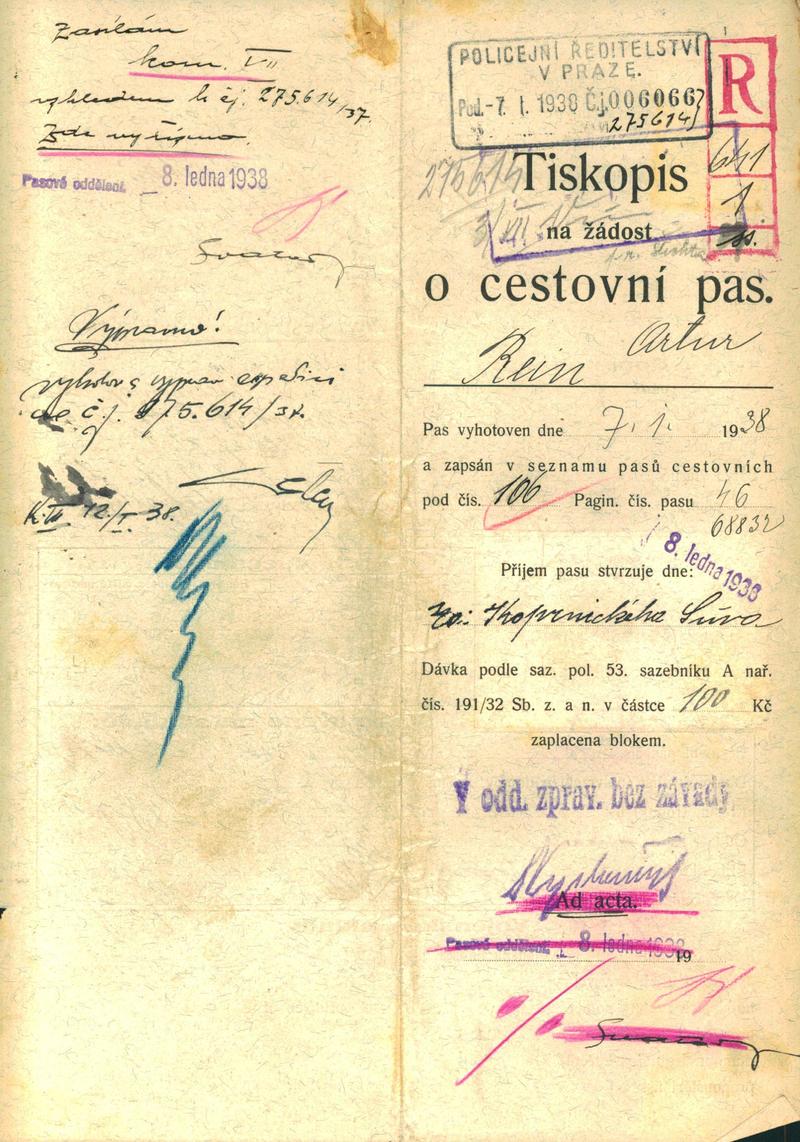 Zasílám
kom. VII
vzhledem k čj. 275.614/37.
Zde vyřízeno.
Pasové oddělení. 8. ledna 1938
Výpravno!
ve č.j. 275.614/37.
12/I 38.
POLICEJNÍ ŘEDITELSTVÍ
V PRAZE.
Pod. -7. I. 1938 Č.j. 006066
275614
R
641
1
275614
Tiskopis
na žádost
o cestovní pas.
Rein Artur
Pas vyhotoven dne 7. 1. 1938
a zapsán v seznamu pasů cestovních
pod čís. 106 Pagin. čís. pasu 46
68832
8. ledna 1938
Příjem pasu stvrzuje dne:
Dávka podle saz. pol. 53. sazebníku A nař.
čís. 191/32 Sb. z. a n. v částce 100 Kč
zaplacena blokem.
V odd. zprav. bez závady
Ad acta.
Pasové oddělení. 8. ledna 1938
19